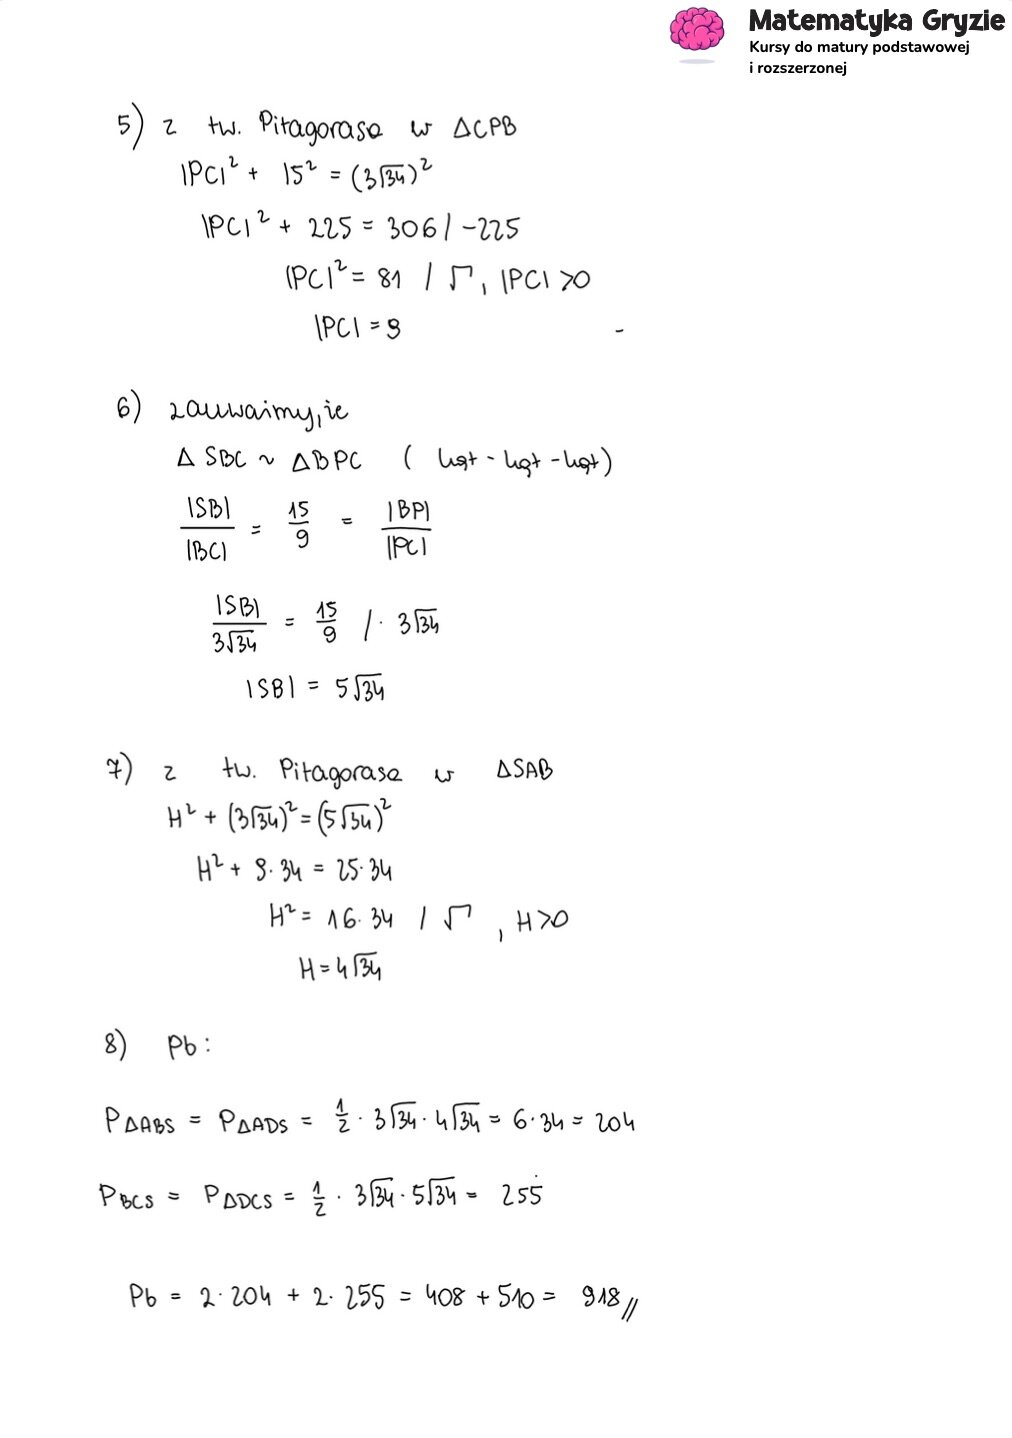 Matematyka Gryzie
Kursy do matury podstawowej
i rozszerzonej
5) z tw. Pitagorasa w ΔCPB
|PC|² + 15² = (3√34)²
|PC|² + 225 = 306 / -225
|PC|² = 81 / √, |PC| >0
|PC| = 9
6) zauważmy, że
Δ SBC ~ ΔBPC ( kąt - kąt - kąt)
|SB|/|BC| = 15/9 = |BP|/|PC|
|SB|/3√34 = 15/9 / · 3√34
|SB| = 5√34
7) z tw. Pitagorasa w ΔSAB
H² + (3√34)² = (5√34)²
H² + 9·34 = 25·34
H² = 16·34 / √ , H>0
H = 4√34
8) Pb:
PΔABS = PΔADS = 1/2 · 3√34 · 4√34 = 6·34 = 204
PBCS = PΔDCS = 1/2 · 3√34 · 5√34 = 255
Pb = 2·204 + 2·255 = 408 + 510 = 918//